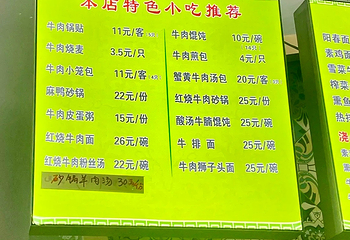 本店特色小吃推荐
牛肉锅贴 11元/客
牛肉烧麦 3.5元/只
牛肉小笼包 11元/客
麻鸭砂锅 22元/份
牛肉皮蛋粥 15元/份
牛肉面 26元/碗
红烧牛肉粉丝汤 22元/碗
砂锅羊肉汤 30
牛肉馄饨 10元/碗
牛肉煎包 4元/只
蟹黄牛肉汤包 20元/客
红烧牛肉砂锅 25元/份
酸汤牛腩馄饨 25元/碗
牛排面 25元/碗
牛肉狮子头面 25元/碗
阳春面
素鸡面
雪菜
榨菜